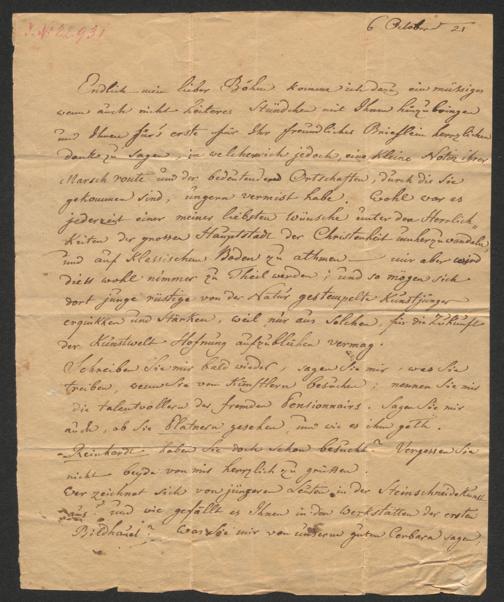 J. No 22.931
6 October 21
Endlich mein lieber Böhm komme ich dazu, ein müssiges
wenn auch nicht heiteres Stündchen mit Ihnen hinzubringen
und Ihnen für's erste für Ihr freundliches Brieflein herzlichen
Dank zu sagen, in welchem ich jedoch, eine kleine Notiz ihrer
Marsch route und der bedeutenderen Ortschaften, durch die Sie
gekommen sind, ungern vermisst habe. Wohl war es
jederzeit einer meiner liebsten Wünsche unter den Herrlich
keiten der grossen Hauptstadt der Christenheit umherzuwandeln
und auf Klassischem Boden zu athmen — mir aber wird
diess wohl nimmer zu Theil werden; und so mögen sich
dort junge rüstige von der Natur gestempelte Kunstjünger
erquikken und Stärken, weil nur aus Solchen, für die Zukunft
der Kunstwelt Hofnung aufzublühen vermag.
Schreiben Sie mir bald wieder, sagen Sie mir, was Sie
treiben, wenn Sie von Künstlern besuchen; nennen Sie mir
die talentvollern der fremden Pensionnairs. Sagen Sie mir
auch, ob Sie Platnern gesehen, und wie es ihm geth.
Reinhardt haben Sie doch schon besucht? Vergessen Sie
nicht beyde von mir herzlich zu grüssen.
Wer zeichnet sich von jüngeren Leuten in der Steinschneidekunst
aus? und wie gefällt es Ihnen in den Werkstätten der ersten
Bildhauer? Was Sie mir von unserem guten Cerbara sagen